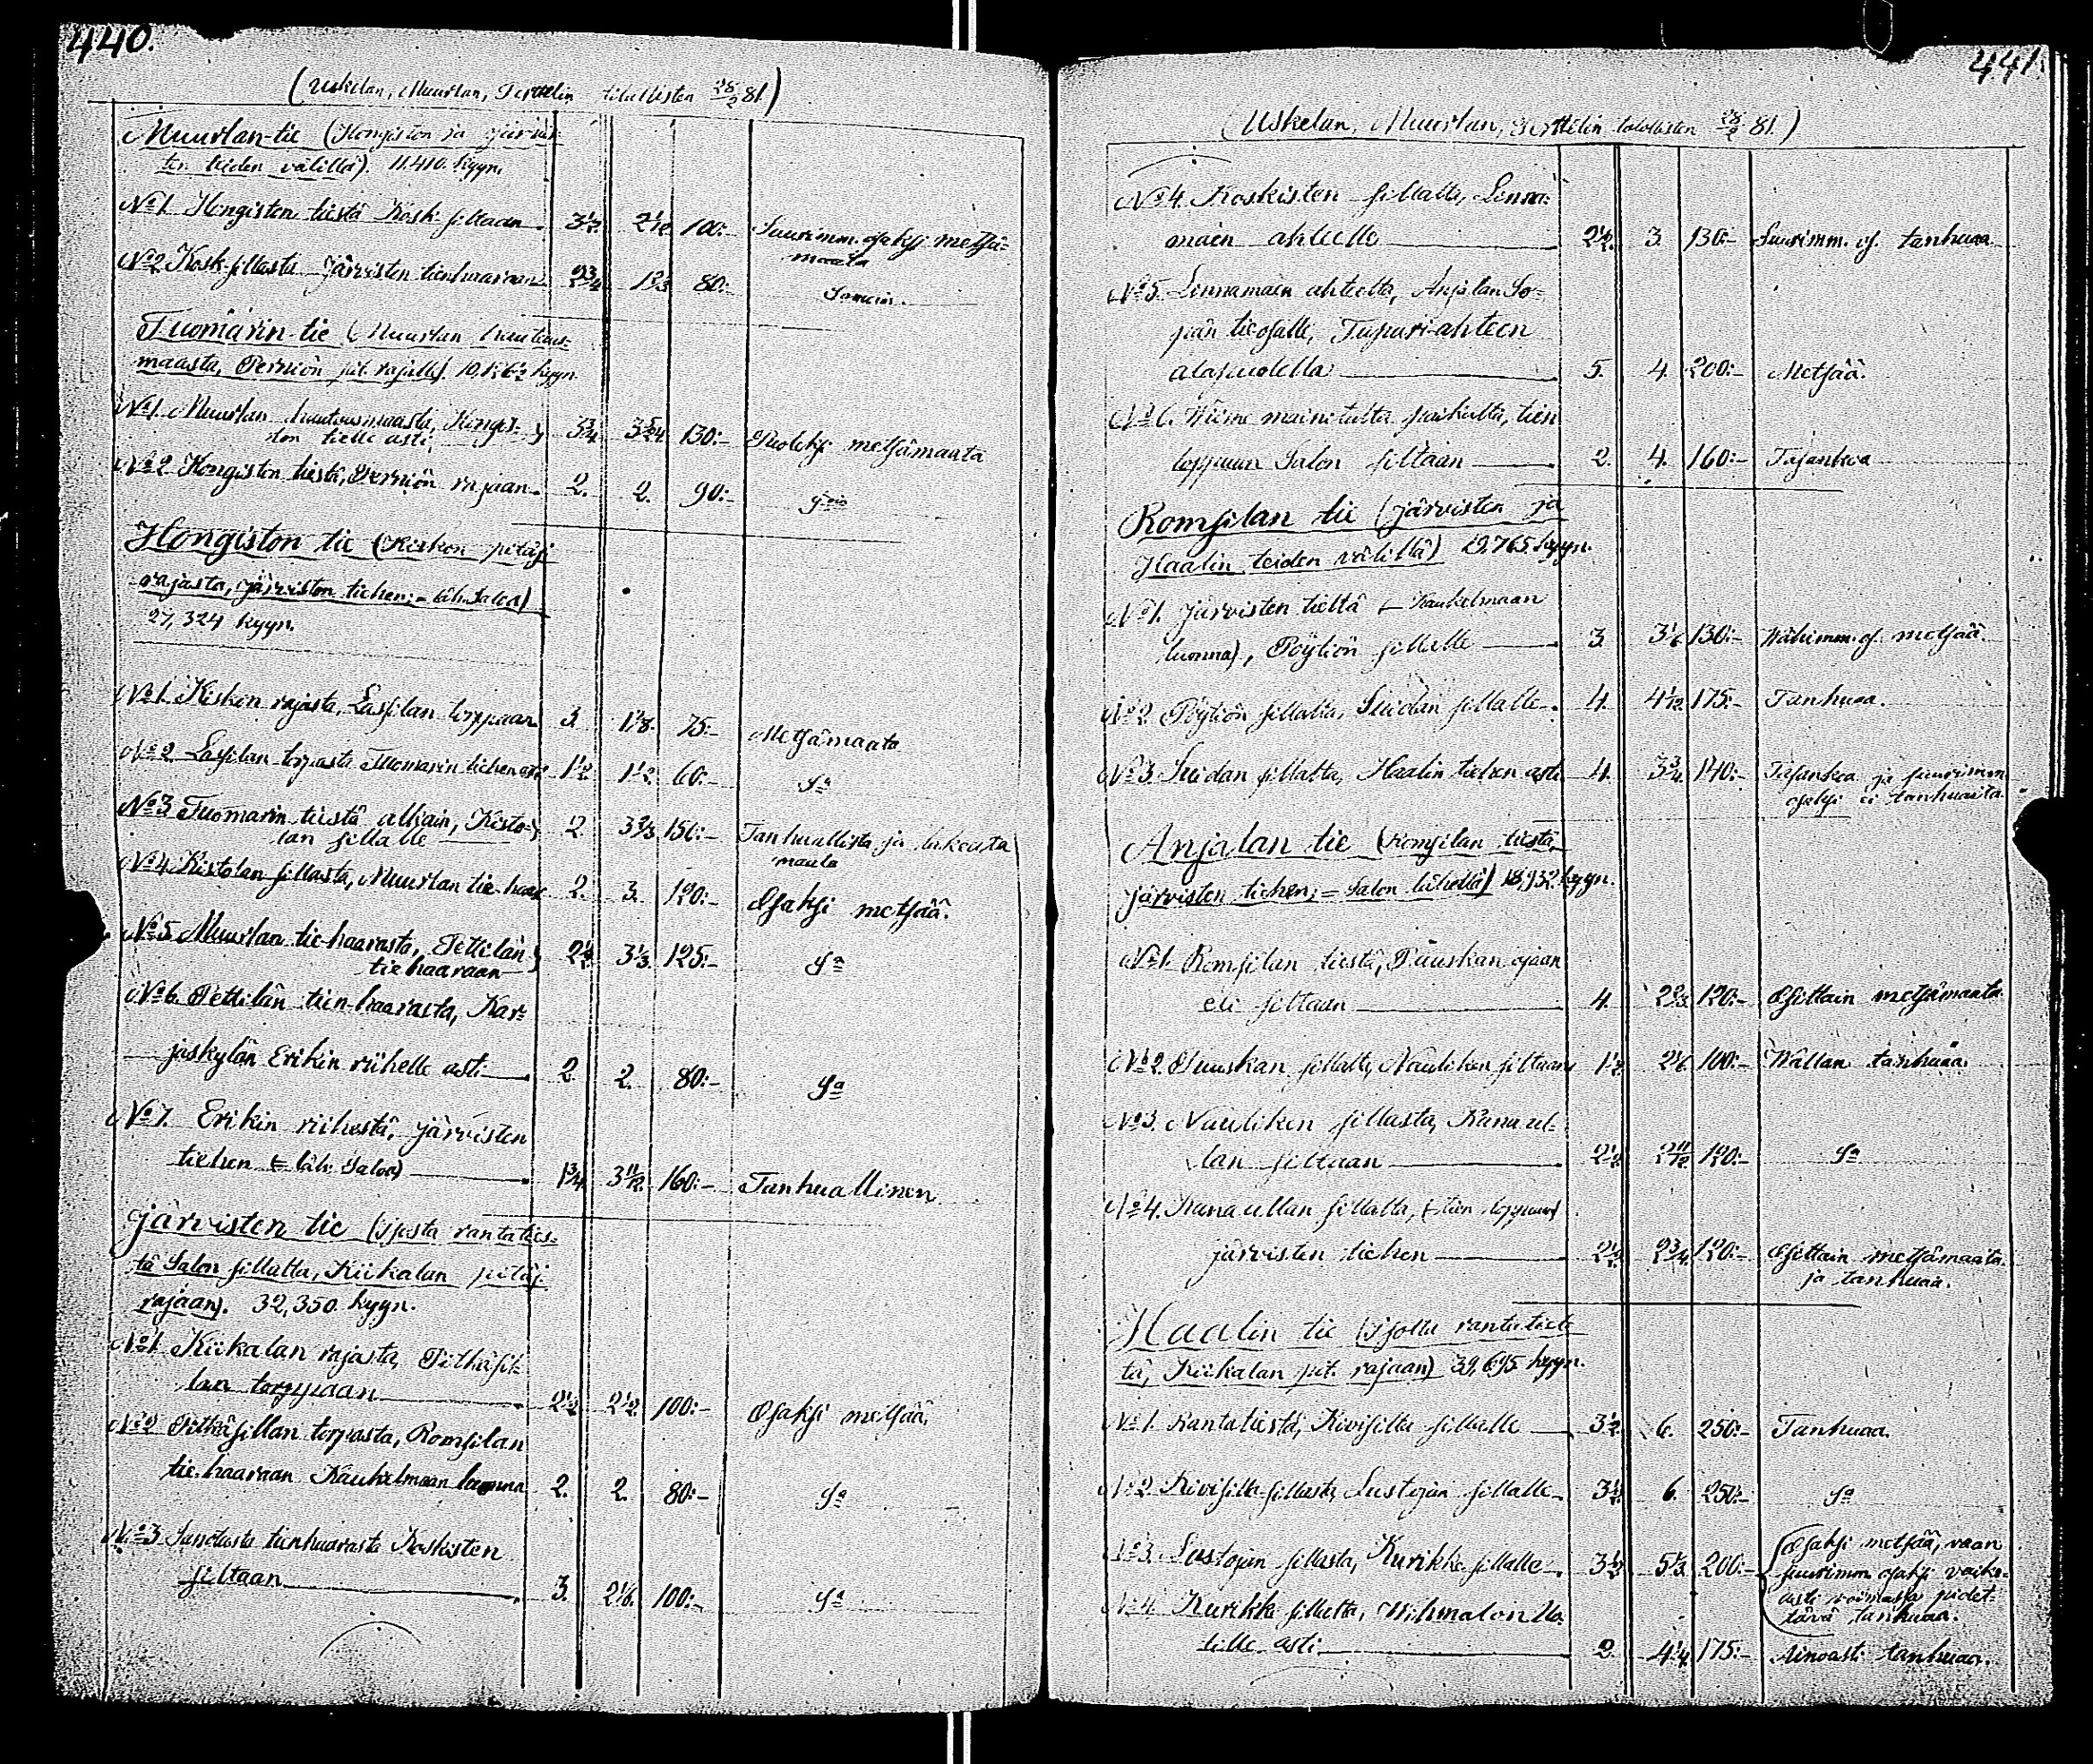 440.
(Uskelan, Muurlan, Perttelin tilallisten 28/2 81.)
Muurlan-tie (Hongiston ja järvis-
ten teiden välillä). 11.410. kyyn.
No 1. Hongisten tiestä Koski siltaan. 3 1/2. 2 1/2 100:- Suurimm. osaksi metsä-
maata
No 2 Kosk-sillasta järvisten tienhaaraan 2 3/4 80:- Samoin.
Tuomarin-tie (Muurlan hautaus-
maasta, Perniön pit. rajalle).
No 1. Muurlan hautausmaasta, Hongis-
ton tielle asti, 130:- Puoleksi metsämaata
No 2 Hongiston tiestä, Perniön rajaan. 2. 2. 90:-
Hongiston tie (Kiskon pitäj.
rajasta, järvisten tiehen; = läh. Saloa)
27,324 kyyn.
No 1. Kiskon rajasta, Lassilan torppaan 3. 75:- Metsämaata
No 2 Lassilan torpasta Tuomarin tiehen asti 1 1/2 1 1/2 60:- Sa
No 3 Tuomarin tiestä alkain, Kisto-
lan sillalle 2. 3 2/3 150:- Tanhuallista ja lakeata
maata
No 4. Kistolan sillasta, Muurlan tie-haar. 2. 3. 120:- Osaksi metsää.
No 5. Muurlan tie-haarasta, Pettilän
tiehaaraan 2 1/2 3 1/3 125:- Sa
No 6. Pettilän tien-haarasta, Kar-
jaskylän Erikin riihelle asti 2. 2. 80:- Sa
No 7. Erikin riihestä, järvisten
tiehen (= läh. Saloa) 1 3/4 3 11/12 160:- Tanhuallinen
Järvisten tie (Isosta rantaties-
tä Salon sillalta, Kiikalan pitäj.
rajaan). 32,350 kyyn.
No 1. Kiikalan rajasta, Pitkäsil-
lan torppaan 2 1/2 2 1/2 100:- Osaksi metsää.
No 2 Pitkäsillan torpasta, Romsilan
tie.haaraan Kaukelmaan luonna 2. 2. 80:- Sa
No 3 Sanotusta tienhaarasta Koskisten
siltaan 3. 2 1/6. 100:- Sa
441.
(Uskelan, Muurlan, Perttelin talollisten 28/2 81.)
No 4. Koskisten sillalta, Linna-
mäen ahteelle 2 1/2. 3. 130:- Suurimm. os. tanhuaa
No 5. Linnamäen ahteelta, Anjalan So-
pän tieosalle, Tupuri-ahteen
alapuolella 5. 4. 200:- Metsää.
No 6. Wiime mainitulta paikalta, tien
loppuun Salon siltaan 2. 4. 160:- Tasankoa
Romsilan tie (järvisten ja
Haalin teiden välillä) 19.765 kyyn.
No 1. järvisten tieltä (= Kaukelmaan
luonna), Pöytiön sillalle 3. 3 1/6 130:- Wähimm. os. metsää
No 2. Pöytiön sillalta, Suidan sillalle 4. 4 1/12 175:- Tanhuaa.
No 3 Suidan sillalta, Haalin tiehen asti 4. 3 3/4 140:- Tasankoa ja suurimm.
osaksi ei tanhuaita.
Anjalan tie (Romsilan tiestä
järvisten tiehen; = Salon lähellä) 18,932 kyyn.
No 1. Romsilan tiestä, Puuskan ojaan
eli siltaan 4. 2 2/3 120:- Osittain metsämaata
No 2. Puuskan sillalta, Nauliken siltaan 1 1/2 2 1/6 100:- Wallan tanhuaa.
No 3. Nauliken sillasta, Kanaul-
lan siltaan 2 1/2 2 11/12 120:- Sa
No 4. Kanaullan sillalta, (= tien loppuun)
järvisten tiehen 2 1/2 2 3/4 120:- Osittain metsämaata
ja tanhuaa.
Haalin tie (Isolta rantatiel-
tä, Kiikalan pit. rajaan) 39,695 kyyn.
No 1. Rantatiestä, Kivisilta sillalle 3 1/2 6. 250:- Tanhuaa.
No 2. Kivisilta-sillasta, Lustojan sillalle 3 1/2 6. 250:- Sa
No 3. Lustojan sillasta, Kurikka-sillalle 3 1/2 5 1/3 200:- Osaksi metsää, vaan
suurimm. osaksi vaike-
asti voimassa pidet-
tävä tanhuaa.
No 4. Kurikka sillalta, Wihmalon
tille asti 2. 4 1/4 175:- Ainoasti tanhuaa.